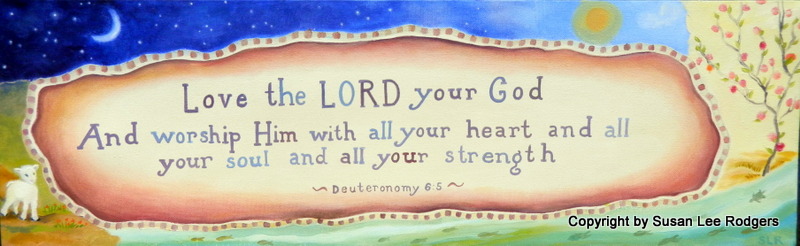 Love the LORD your God
And worship Him with all your heart and all
your soul and all your strength
~ Deuteronomy 6:5 ~
SLR
Copyright by Susan Lee Rodgers